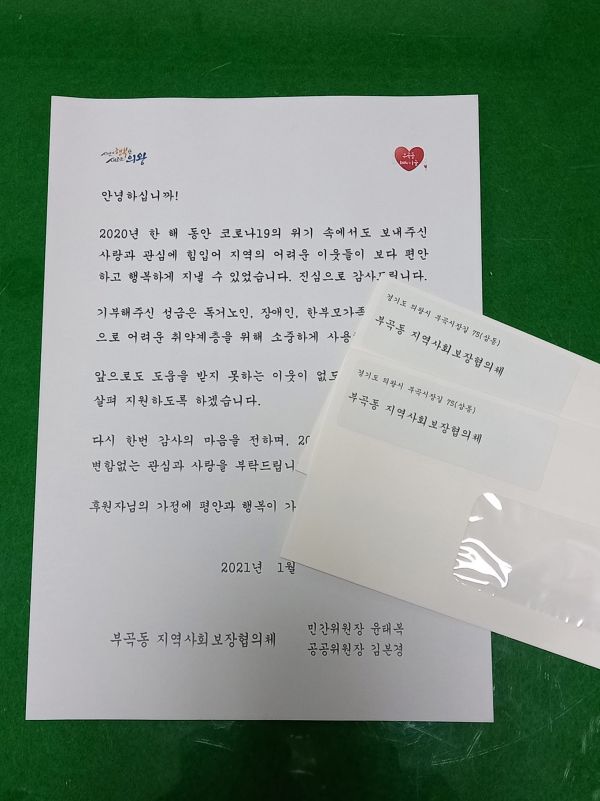 의왕
안녕하십니까!
2020년 한 해 동안 코로나19의 위기 속에서도 보내주신
사랑과 관심에 힘입어 지역의 어려운 이웃들이 보다 편안
하고 행복하게 지낼 수 있었습니다. 진심으로 감사드립니다.
기부해주신 성금은 독거노인, 장애인, 한부모가족
으로 어려운 취약계층을 위해 소중하게 사용
앞으로도 도움을 받지 못하는 이웃이 없도
살펴 지원하도록 하겠습니다.
다시 한번 감사의 마음을 전하며, 20
변함없는 관심과 사랑을 부탁드립니
후원자님의 가정에 평안과 행복이 가
2021년 1월
부곡동 지역사회보장협의체
민간위원장 윤태복
공공위원장 김본경
경기도 의왕시 부곡시장길 75(삼동)
부곡동 지역사회보장협의체
경기도 의왕시 부곡시장길 75(삼동)
부곡동 지역사회보장협의체